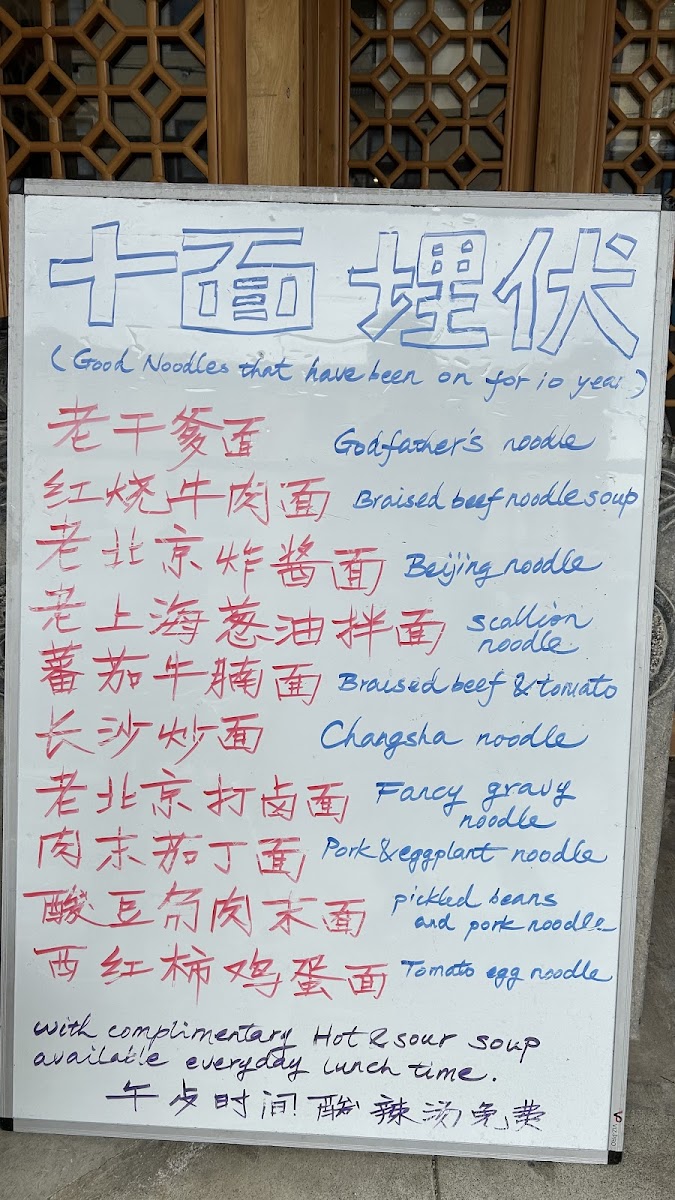 十面埋伏
(Good Noodles that have been on for 10 year)
老干爹面 Godfather's noodle
红烧牛肉面 Braised beef noodle soup
老北京炸酱面 Beijing noodle
老上海葱油拌面 scallion
noodle
蕃茄牛腩面 Braised beef & tomato
长沙炒面 Changsha noodle
老北京打卤面 Fancy gravy
noodle
肉末茄丁面 Pork & eggplant noodle
酸豆角肉末面 pickled beans
and pork noodle
西红柿鸡蛋面 Tomato egg noodle
with complimentary Hot & sour soup
available everyday lunch time.
午点时间! 酸辣汤免费